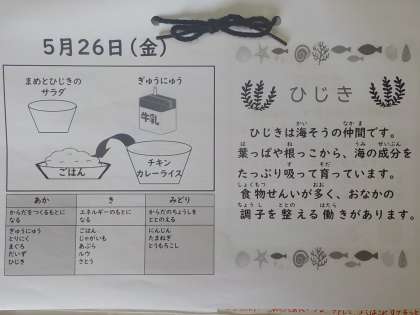 5月26日(金)
まめとひじきの
サラダ
ぎゅうにゅう
牛乳
ごはん
チキン
カレーライス
あか
き
みどり
からだをつくるもとに
なる
エネルギーのもとに
なる
からだのちょうしを
ととのえる
ぎゅうにゅう
とりにく
まぐろ
だいず
ひじき
ごはん
じゃがいも
あぶら
ルウ
さとう
にんじん
たまねぎ
とうもろこし
ひじき
ひじきは海そうの仲間です。
葉っぱや根っこから、海の成分を
たっぷり吸って育っています。
食物せんいが多く、おなかの
調子を整える働きがあります。